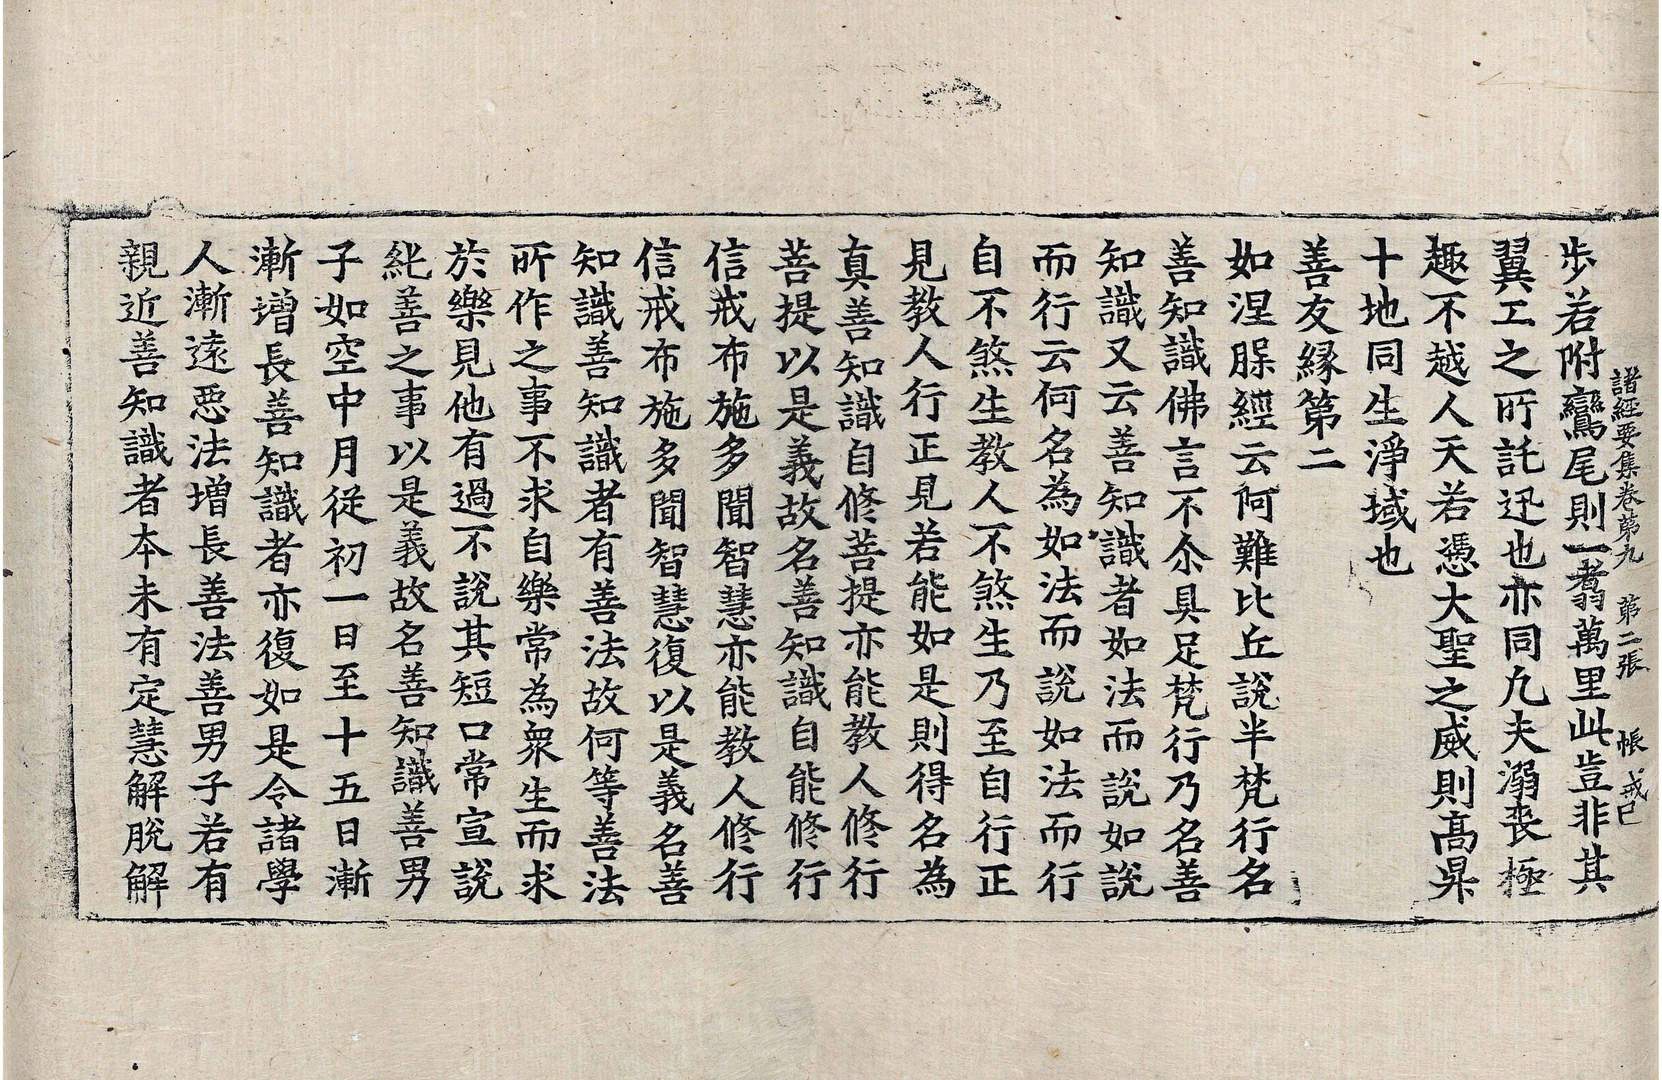 諸經要集卷第九 第二張 帳 戒巳
步若附鸞尾則一翥萬里此豈非其
翼工之所託迅也亦同凢夫溺喪極
趣不越人天若憑大聖之威則髙昇
十地同生淨域也
善友緣第二
如涅槃經云阿難比丘說半梵行名
善知識佛言不尒具足梵行乃名善
知識又云善知識者如法而說如說
而行云何名為如法而說如法而行
自不煞生教人不煞生乃至自行正
見教人行正見若能如是則得名為
真善知識自修菩提亦能教人修行
菩提以是義故名善知識自能修行
信戒布施多聞智慧亦能教人修行
信戒布施多聞智慧復以是義名善
知識善知識者有善法故何等善法
所作之事不求自樂常為衆生而求
於樂見他有過不說其短口常宣說
純善之事以是義故名善知識善男
子如空中月從初一日至十五日漸
漸增長善知識者亦復如是令諸學
人漸遠惡法增長善法善男子若有
親近善知識者本未有定慧解脫解